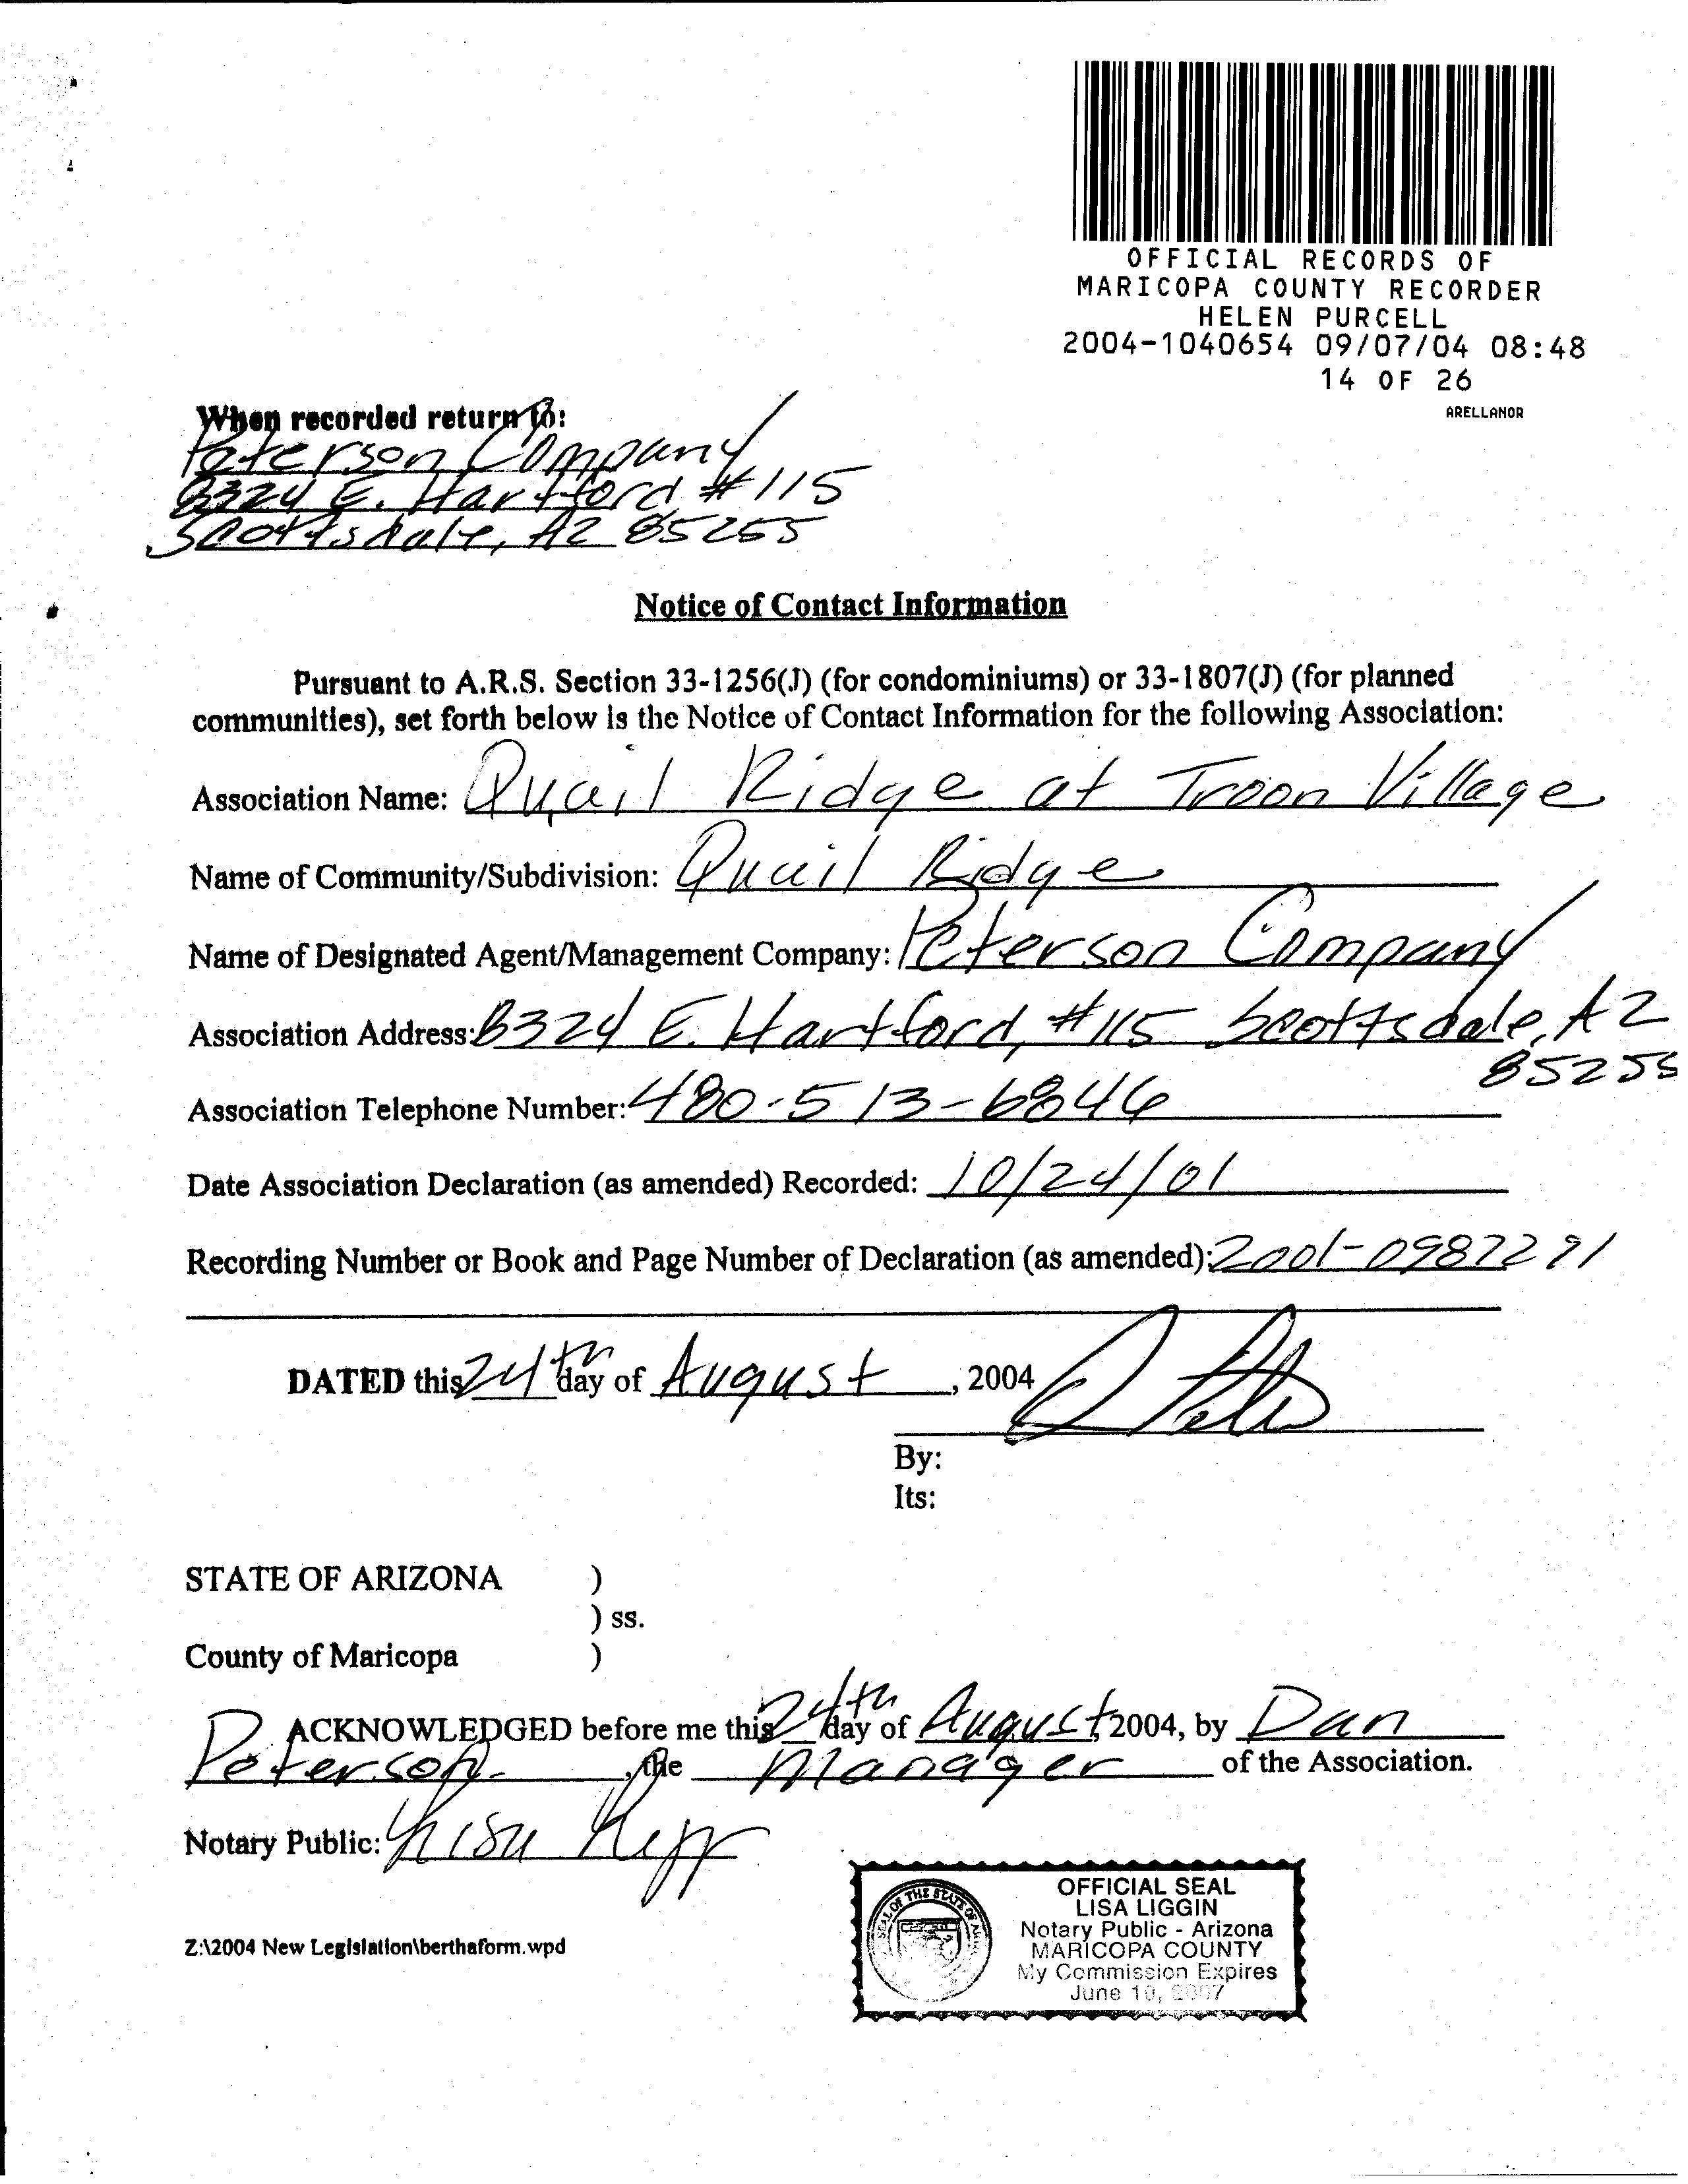 OFFICIAL RECORDS OF
MARICOPA COUNTY RECORDER
HELEN PURCELL
2004-1040654 09/07/04 08:48
14 OF 26
ARELLANOR
When recorded return to:
Peterson Company
8324 E. Hartford #115
Scottsdale, AZ 85255
Notice of Contact Information
Pursuant to A.R.S. Section 33-1256(J) (for condominiums) or 33-1807(J) (for planned
communities), set forth below is the Notice of Contact Information for the following Association:
Association Name: Quail Ridge at Troon Village
Name of Community/Subdivision: Quail Ridge
Name of Designated Agent/Management Company: Peterson Company
Association Address: 8324 E. Hartford, #115 Scottsdale, AZ
85255
Association Telephone Number: 480-513-6846
Date Association Declaration (as amended) Recorded: 10/24/01
Recording Number or Book and Page Number of Declaration (as amended): 2001-0987291
DATED this 24th day of August, 2004
By:
Its:
STATE OF ARIZONA )
) ss.
County of Maricopa )
ACKNOWLEDGED before me this 24th day of August, 2004, by Dan
Peterson, the Manager of the Association.
Notary Public: Lisa
OFFICIAL SEAL
LISA LIGGIN
Notary Public - Arizona
MARICOPA COUNTY
My Commission Expires
June 10, 2007
SEAL OF THE STATE OF
Z:\2004 New Legislation\berthaform.wpd